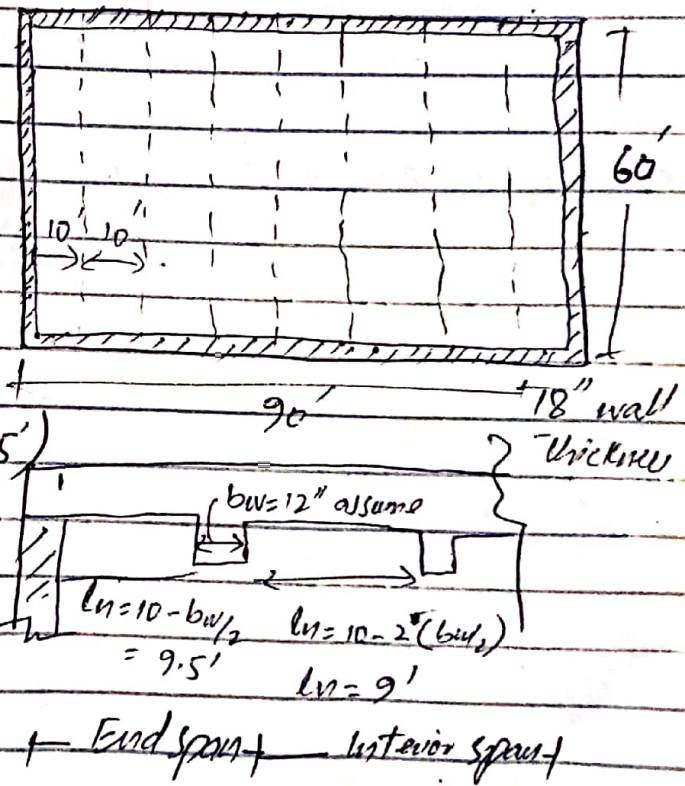 60'
10' 10'
90'
18" wall
thickness
5')
bw=12" assume
ln=10-bw/2
= 9.5'
ln=10-2*(bw/2)
ln=9'
End span
Interior span